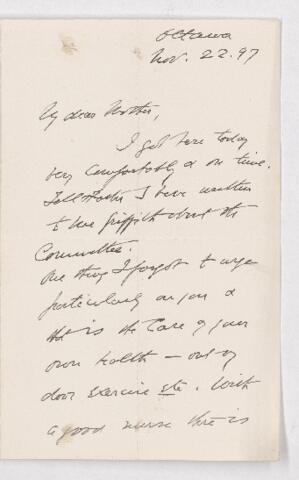 Ottawa
Nov. 22. 97
My dear Mother,
I got here today
very comfortably & on time.
Tell Father I have written
to Griffith about the
Committee.
One thing I forgot to urge
particularly on you &
that is the Care of your
own health — out of
door exercise etc. With
a good nurse there is